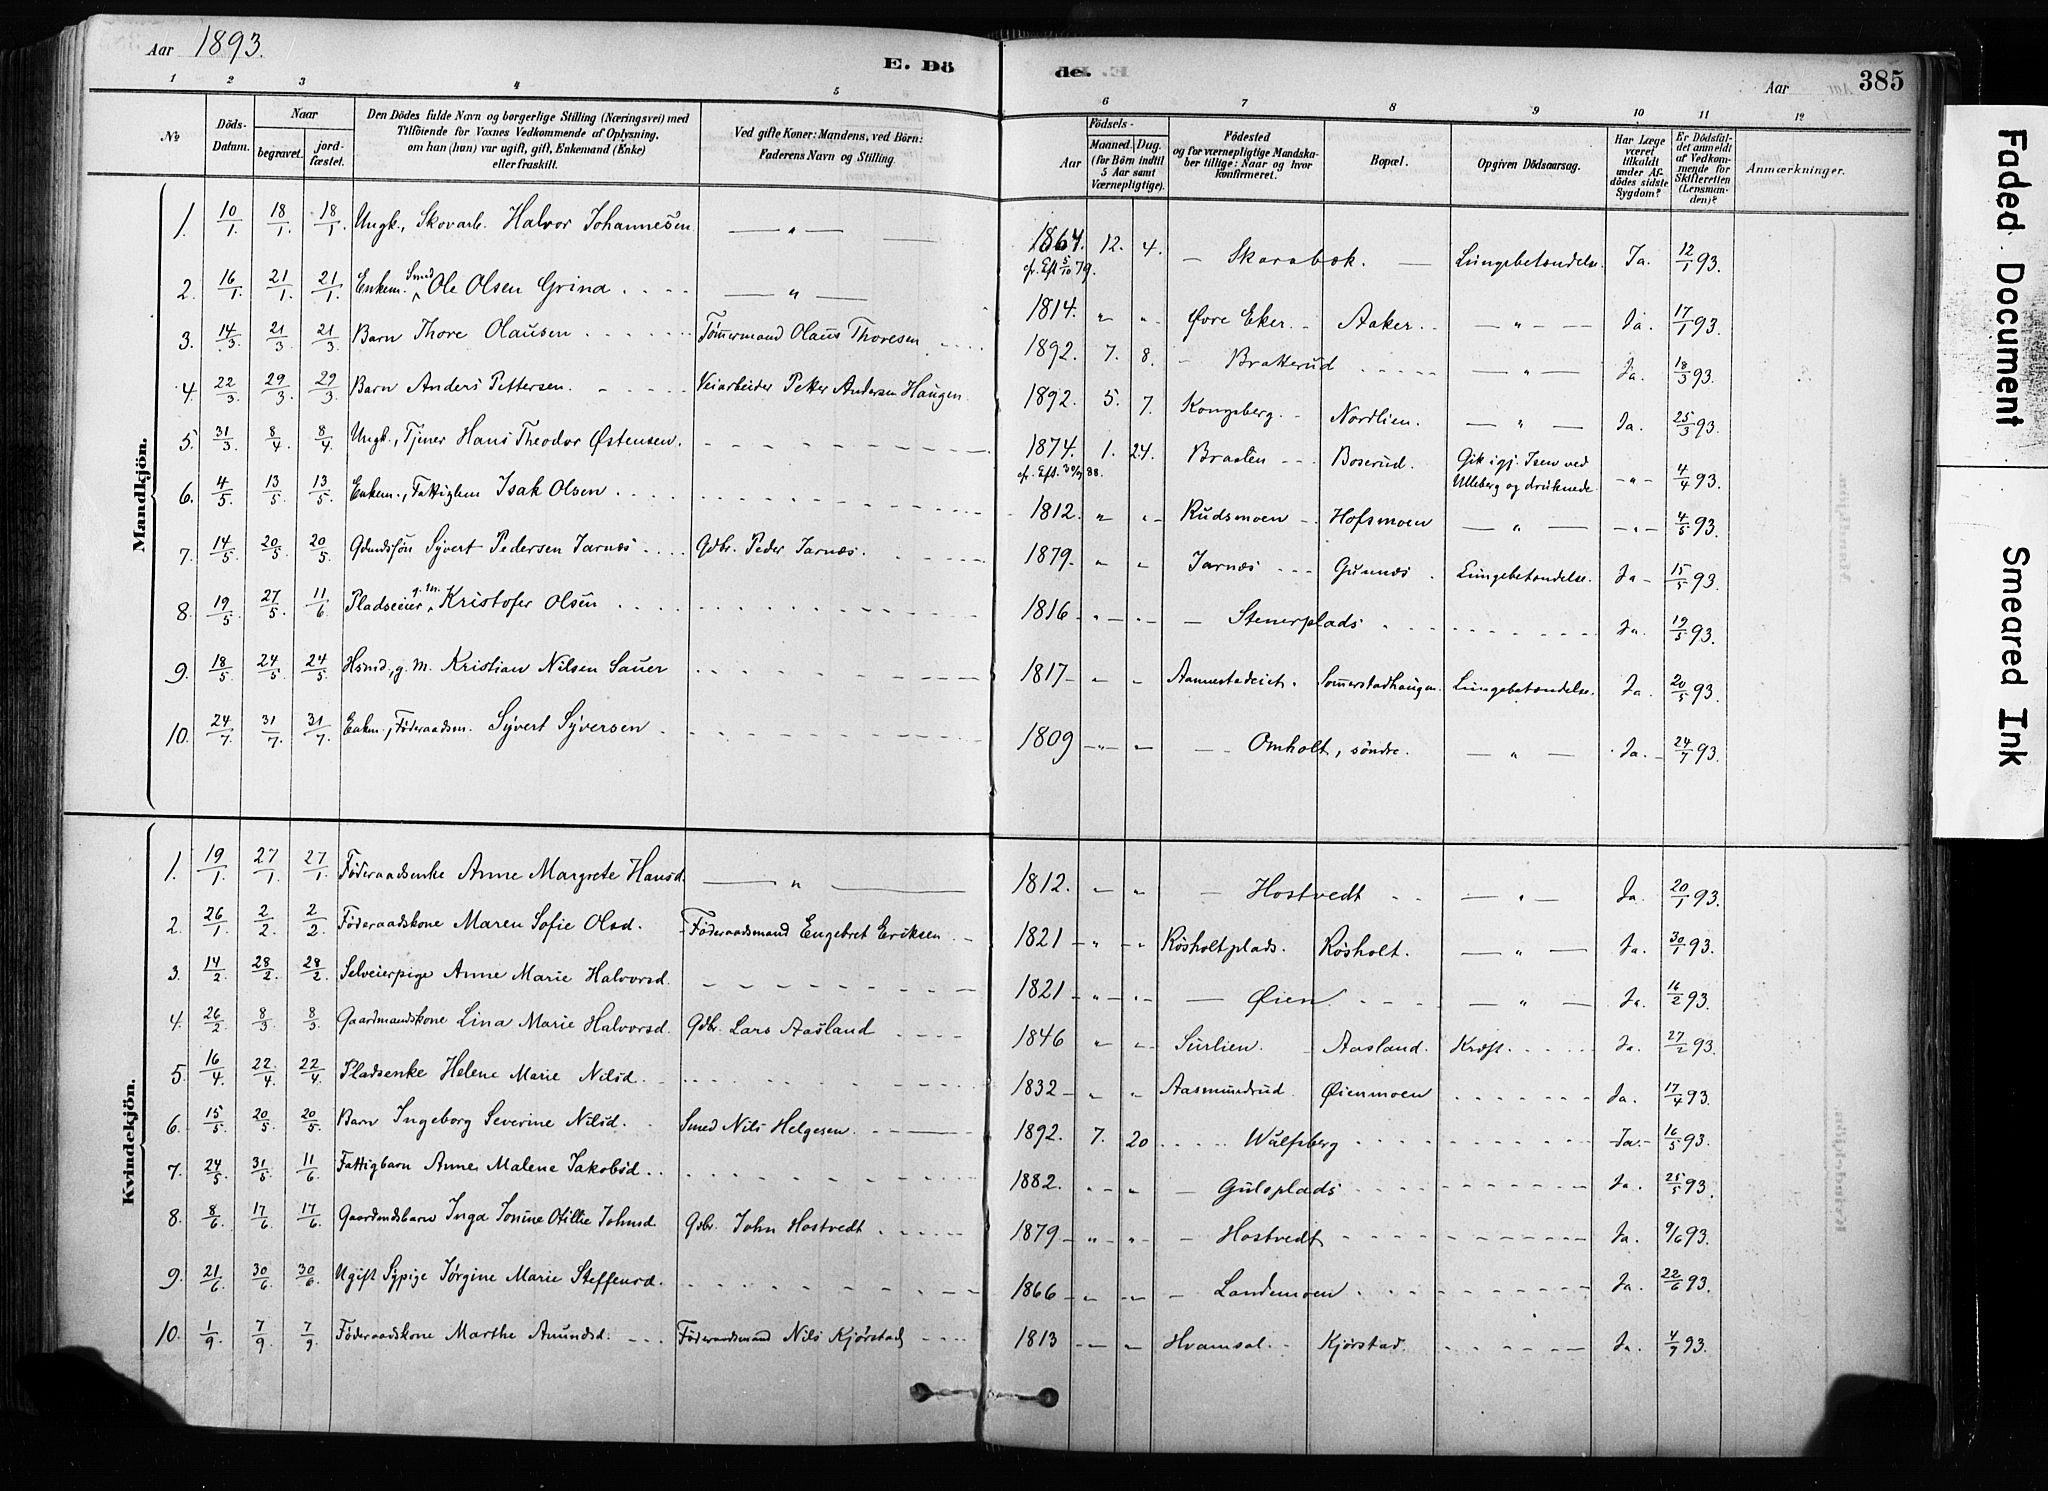 Aar 1893.
E. Dö
de.
Aar
385
1 2 3 4 5 6 7 8 9 10 11 12
No
Döds-Datum.
Naar
begravet.
jord-fæstet.
Den Dödes fulde Navn og borgerlige Stilling (Næringsvei) med
Tilföiende for Voxnes Vedkommende af Oplysning,
om han (hun) var ugift, gift, Enkemand (Enke)
eller fraskilt.
Ved gifte Koner: Mandens, ved Börn:
Faderens Navn og Stilling.
Födsels-
Aar
Maaned. Dag.
(for Börn indtil
5 Aar samt
Værnepligtige).
Födested
og for værnepligtige Mandska-
ber tillige: Naar og hvor
konfirmeret.
Bopæl.
Opgiven Dödsaarsag.
Har Læge
været
tilkaldt
under Af-
dödes sidste
Sygdom?
Er Dödsfal-
det anmeldt
af Vedkom-
mende for
Skifteretten
(Lensman-
den)?
Anmærkninger.
Mandkjön.
1. 10/1. 18/1. 18/1. Ungk., Skovarb. Halvor Johannesen — " — 1864. 12. 4. — Skarabæk. — Lungebetændelse. Ja. 12/1 93.
cf. Eft 5/10 79.
2. 16/1. 21/1. 21/1. Enkem. Smed Ole Olsen Grind — " — 1814. " " Øvre Eker. Aaker. — " — Ja. 17/1 93.
3. 14/3. 21/3 21/3 Barn Thore Olausen Tömmermand Olaus Thoresen 1892. 7. 8. — Bratterud — " — Ja. 18/3 93.
4. 22/3. 29/3. 29/3. Barn Anders Pettersen. Veiarbeider Petter Andersen Haugen. 1892. 5. 7. Kongsberg. Nordlien. — " — Ja. 25/3 93.
5. 31/3. 8/4. 8/4. Ungk., Tjener Hans Theodor Østensen. 1874. 1. 24. Braaten Boserud. Gik igj. Isen ved
Ulleberg og druknede. — " — 4/4 93.
6. 4/5. 13/5. 13/5. Enkem., Fattiglem Isak Olsen 1812. " " Rudsmoen Hofsmoen — " — — " — 4/5 93.
7. 14/5. 20/5. 20/5. Gdmdssön Syvert Pedersen Jarnæs Gdbr. Peder Jarnæs. 1879. " " Jarnæs Gunnæs. Lungebetændelse. Ja 15/5 93.
8. 19/5. 27/5. 11/6 Pladseier g. m. Kristofer Olsen 1816 " " — Stenerplads Ja. 19/5 93.
9. 18/5. 24/5. 24/5. Hsmd., g. m. Kristian Nilsen Sauer 1817 " " Aannestadeiet. Sommerstadhaugen. Lungebetændelse. Ja. 20/5 93.
10. 24/7. 31/7. 31/7. Enkem., Föderaadsm. Syvert Syversen 1809 " " — Omholt, söndre. " Ja. 24/7 93.
Kvindekjön.
1. 19/1. 27/1. 27/1. Föderaadsenke Anne Margrete Hansd. — " — 1812. " " — Hostvedt — " — Ja. 20/1 93.
2. 26/1. 2/2. 2/2. Föderaadskone Maren Sofie Olsd. Föderaadsmand Engebret Eriksen 1821 " " Røsholtplads. Røsholt. — " — Ja. 30/1 93.
3. 14/2 28/2. 28/2. Selveierpige Anne Marie Halvorsd. 1821 " " — Øien — " — Ja. 16/2 93.
4. 26/2. 8/3. 8/3. Gaardmandskone Lina Marie Halvorsd. Gdbr. Lars Aasland 1846 " " Surlien. Aasland. Kræft. Ja. 27/2 93.
5. 16/4. 22/4. 22/4. Pladsenke Helene Marie Nilsd. 1832 " " Aasmundrud Øienmoen Ja. 17/4 93.
6. 15/5. 20/5. 20/5. Barn Ingeborg Severine Nilsd. Smed Nils Helgesen. 1892. 7. 20 Wulfsberg Ja. 16/5 93.
7. 24/5. 31/5. 11/6. Fattigbarn Anne Malene Jakobsd. 1882. " " — Gulsplads Ja. 25/5 93.
8. 8/6 17/6. 17/6. Gaardmdsbarn Inga Jonine Otillie Johnsd. Gdbr. John Hostvedt 1879 " " — Hostvedt Ja. 9/6 93.
9. 21/6. 30/6. 30/6. Ugift Sypige Jørgine Marie Steffensd. 1866 " " — Landemoen Ja. 22/6 93.
10. 1/9. 7/9. 7/9. Föderaadskone Marthe Amundsd. Föderaadsmand Nils Kjørstad 1813 " " Hvamsal. Kjørstad. Ja. 4/9 93.
Faded Document
Smeared Ink